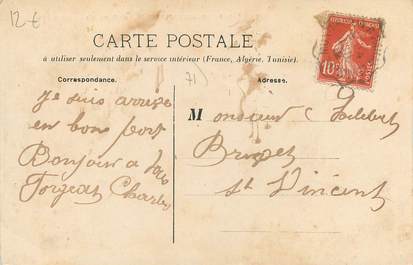 12 €
CARTE POSTALE
à utiliser seulement dans le service intérieur (France, Algérie, Tunisie).
Correspondance.
71
Adresse.
10
POSTES
je suis arrivé
en bon port
Bonjour a tous
Charles
Monsieur
St Vincent